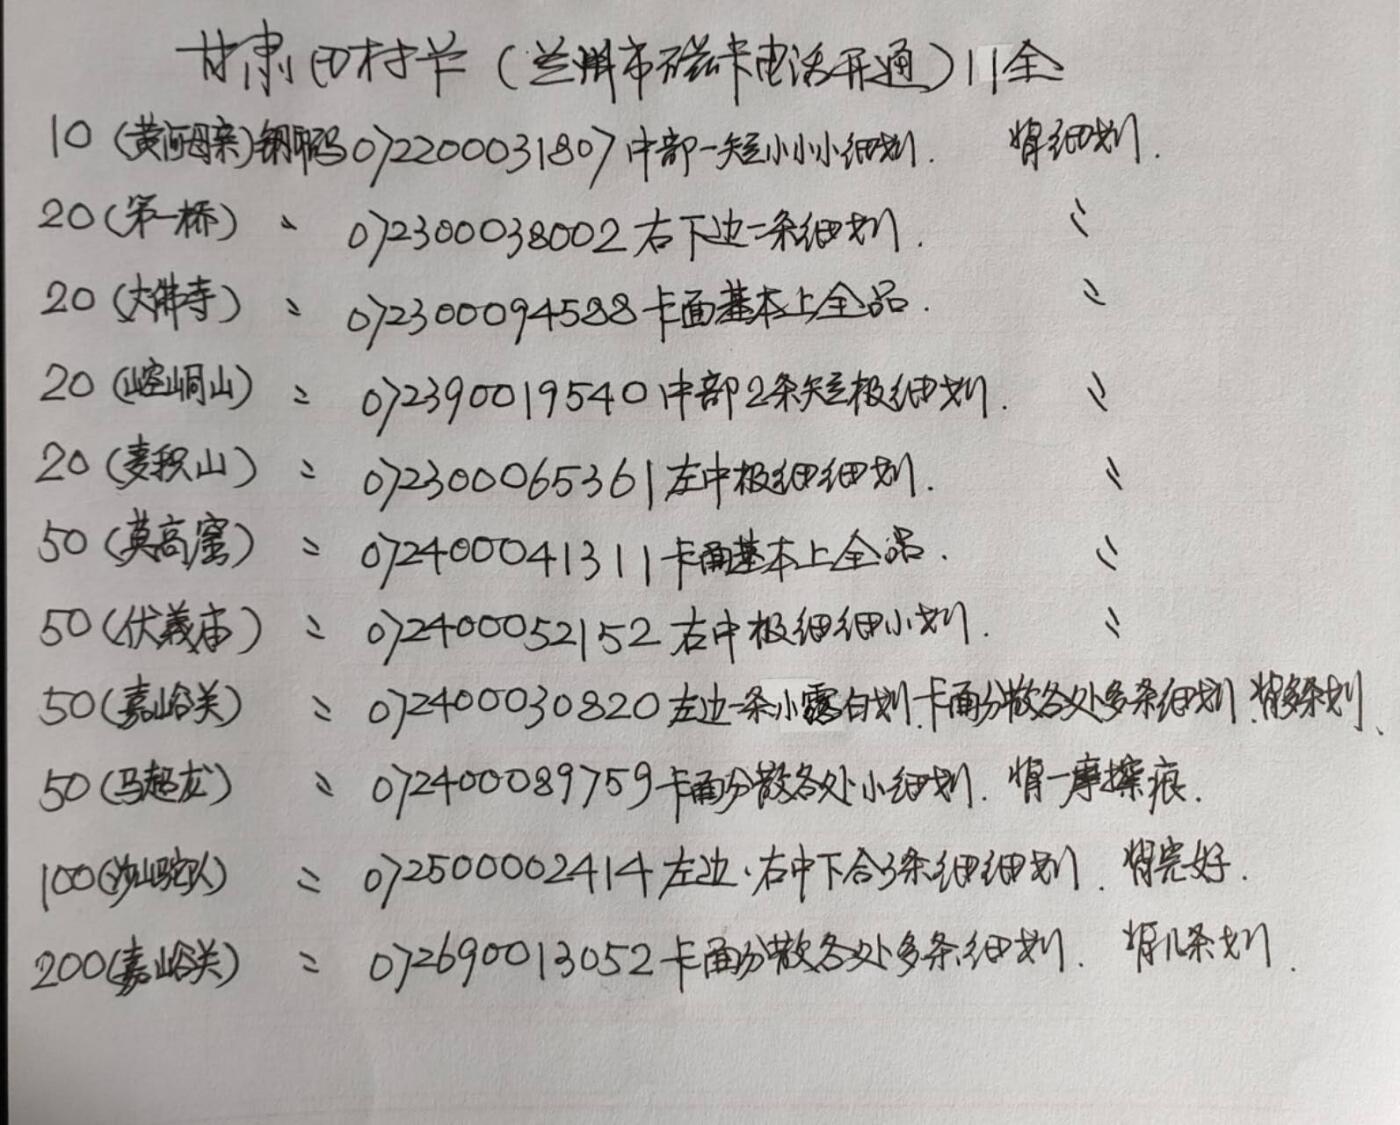 甘肃田村卡（兰州市磁卡电话开通）11全
10（黄河母亲）钢印码072200031807中部一短小小小细划. 背细划.
20（第一桥） 〃 072300038002右下边二条细划. 〃
20（大佛寺） 〃 072300094588卡面基本上全品. 〃
20（崆峒山） 〃 072390019540中部2条短极细划. 〃
20（麦积山） 〃 072300065361左中极细细划. 〃
50（莫高窟） 〃 072400041311卡面基本上全品. 〃
50（伏羲庙） 〃 072400052152右中极细细小划. 〃
50（嘉峪关） 〃 072400030820左边一条小露白划.卡面分散各处多条细划.背多条划、
50（马超龙） 〃 072400089759卡面分散各处小细划. 背一摩擦痕.
100（沙山驼队） 〃 072500002414左边.右中下合3条细细划. 背完好.
200（嘉峪关） 〃 072690013052卡面分散各处多条细划. 背几条划.